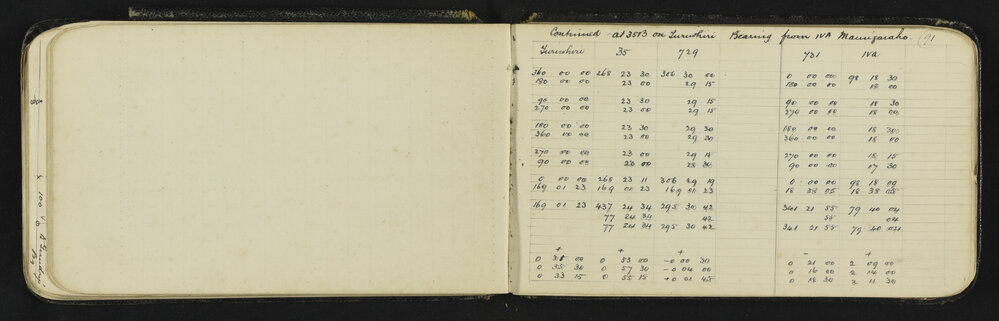 Continued at 3573 on Turuohiri Bearing from IVA Maungaraho. 91
Turuohiri 35 729 731 IVA
360 00 00 268 23 30 306 30 00 0 00 00 98 18 30
180 00 00 23 00 29 15 180 00 00 18 00
90 00 00 23 30 29 15 90 00 00 18 30
270 00 00 23 00 29 15 270 00 00 18 00
180 00 00 23 30 29 30 180 00 00 18 30
360 00 00 23 00 29 30 360 00 00 18 00
270 00 00 23 00 29 15 270 00 00 18 15
90 00 00 23 00 28 30 90 00 00 17 30
0 00 00 268 23 11 306 29 19 0 00 00 98 18 09
169 01 23 169 00 23 169 00 23 18 38 05 18 38 05
169 01 23 437 24 34 295 30 42 341 21 55 79 40 04
77 24 34 42 55 04
77 24 34 295 30 42 341 21 55 79 40 04
+ + - +
0 31 00 0 53 00 -0 00 30 0 21 00 2 09 00
0 35 30 0 57 30 -0 04 00 0 16 00 2 14 00
0 33 15 0 55 15 +0 01 45 0 18 30 2 11 30